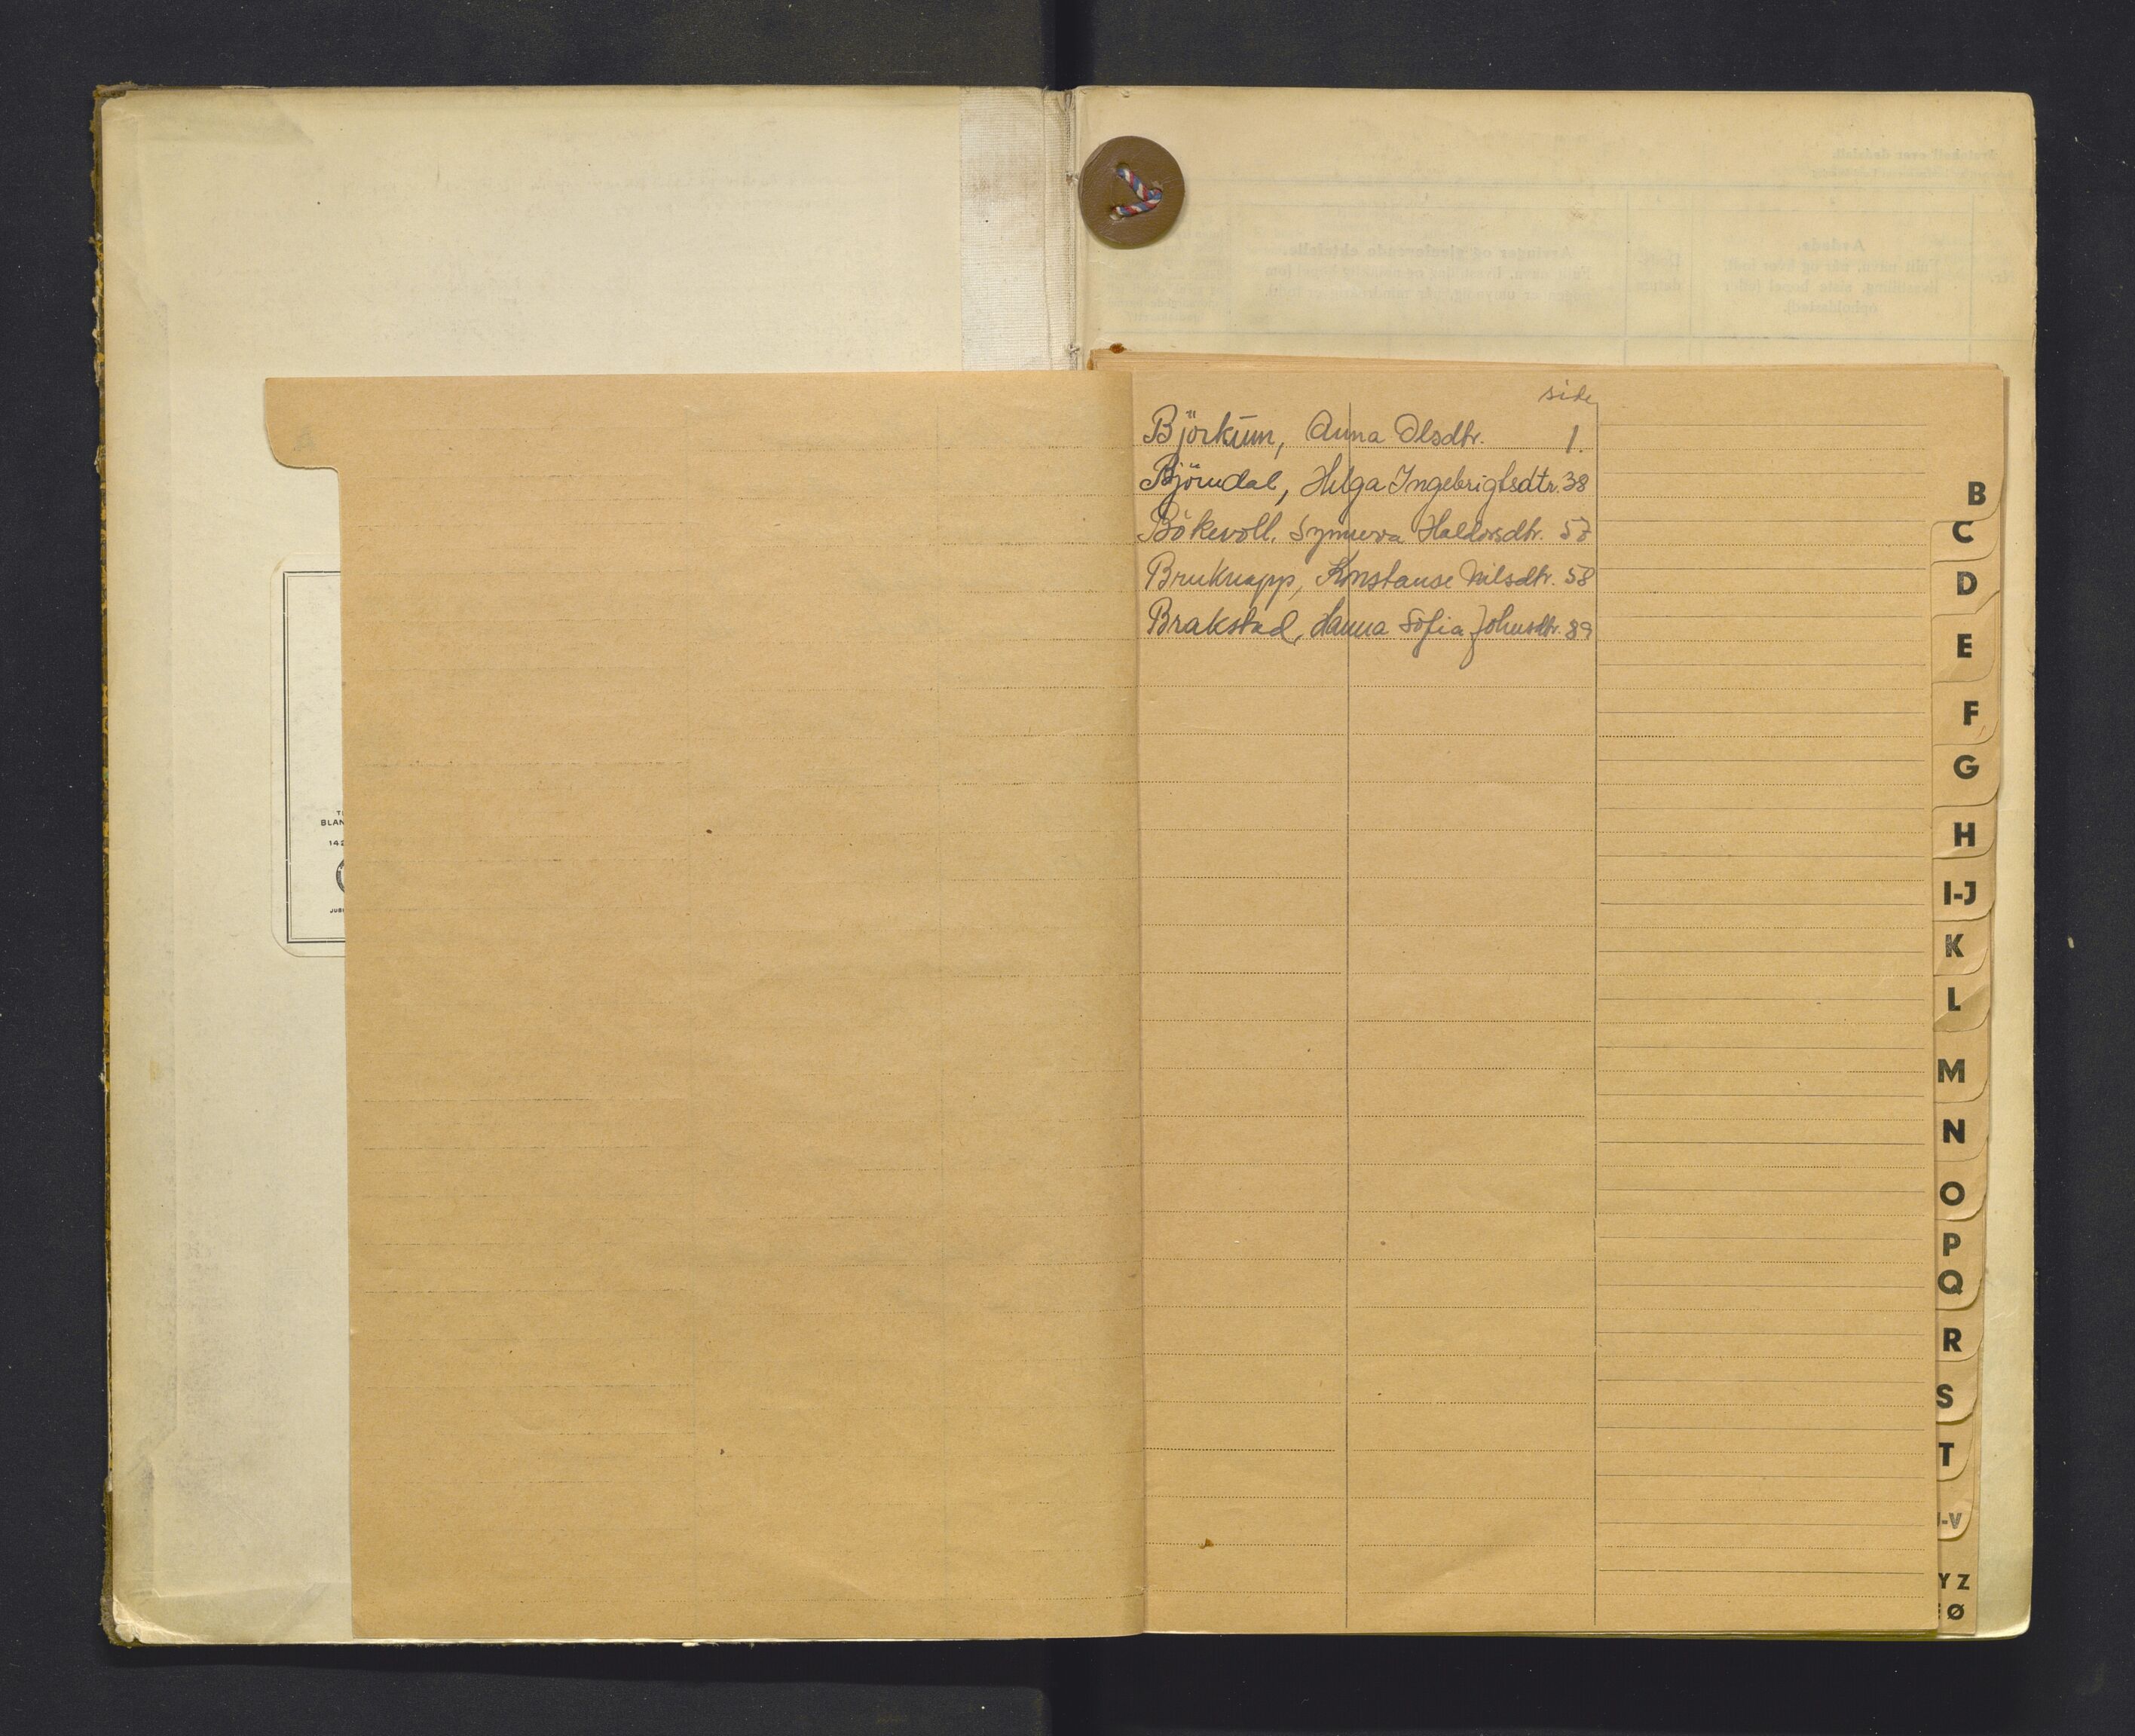 side
Björkum, Anna Olsdtr. 1.
Björndal, Helga Ingebrigtsdtr. 38
Bökevoll, Synneva Haldorsdtr. 57
Bruknapp, Konstanse Nilsdtr. 58
Brakstad, Hanna Sofia Johnsdtr. 89
B
C
D
E
F
G
H
I-J
K
L
M
N
O
P
Q
R
S
T
-V
Y Z
Ø